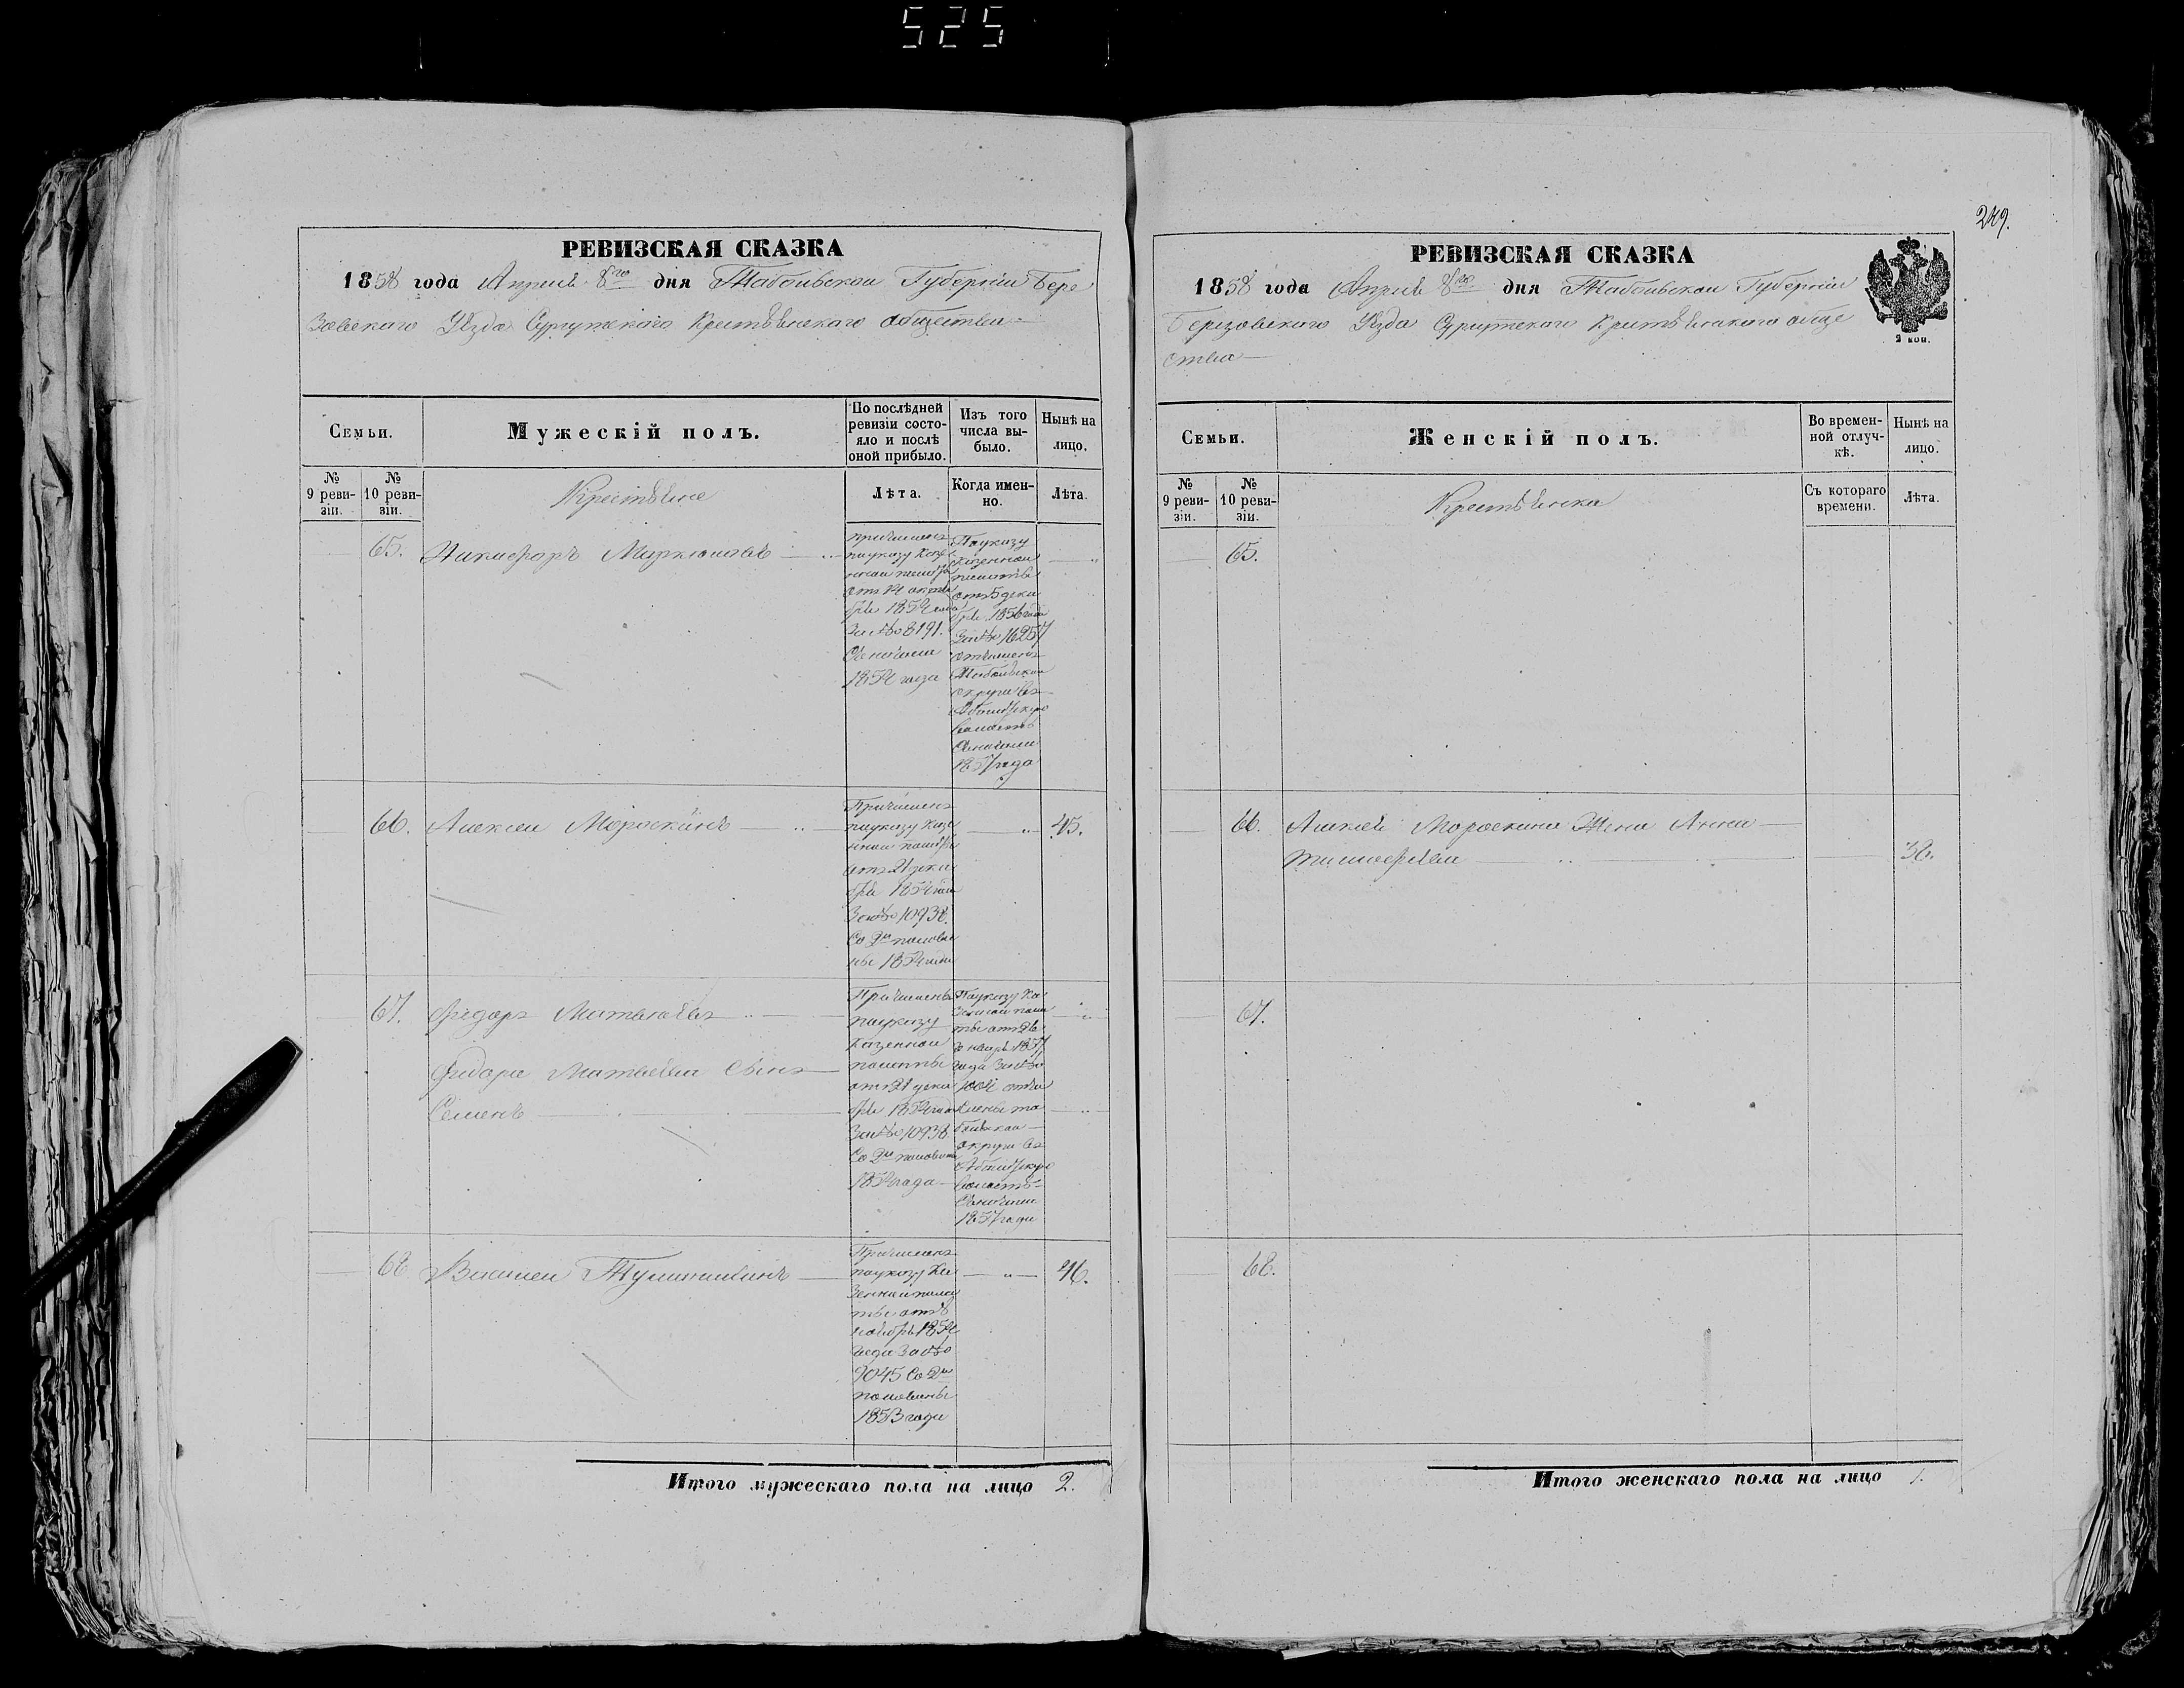 525
РЕВИЗСКАЯ СКАЗКА
1858 года Апреля 8го дня Тобольской Губерніи Бере
зовскаго Уѣзда Сургутского Крестьянскаго общества
Семьи.
Мужескій полъ.
По послѣдней ревизіи состо-
яло и послѣ
оной прибыло.
Изъ того
числа вы-
было.
Нынѣ на
лицо.
№
9 реви-
зіи.
№
10 реви-
зіи.
Крестьяне
Лѣта.
Когда имен-
но.
Лѣта.
65. Никифоръ
Причисленъ
по указу Казе
нной палаты
бря 1854 года
За № 8191.
Съ начала
1854 года
По указу
Казенной
палаты
отъ 5 дека
бря 1856 года
За № 16257
отчисленъ
Тобольской
округи въ
волость
Съ начала
1857 года
66. Алексей Мороскинъ
Причисленъ
по указу Казе
нной палаты
отъ 21 дека
бря 1854 года
За № 10938.
Со 2й полови
ны 1854 года
45.
67. Федоръ Матвеевъ
Федора Матвеева Сынъ
Семенъ
Причисленъ
по указу
Казенной
палаты
отъ 21 дека
бря 1854 года
За № 10938.
Со 2й половины
1854 года
По указу Ка
зенной пала
ты отъ 26
Января 1857
года За №
отчи
слены То
больской
округи въ
волость
Съ начала
1857 года
68 Василей
Причисленъ
по указу Ка
зенной пала
ты отъ
ноября 1854
года За №
9045 Со 2й
половины
1853 года
46.
Итого мужескаго пола на лицо 2.
249.
РЕВИЗСКАЯ СКАЗКА
1858 года Апреля 8го дня Тобольской Губерніи
Березовскаго Уѣзда Сургутскаго Крестьянскаго обще
ства
2 коп.
Семьи.
Женскій полъ.
Во времен-
ной отлуч-
кѣ.
Нынѣ на
лицо.
№
9 реви-
зіи.
№
10 реви-
зіи.
Крестьянска
Съ котораго
времени.
Лѣта.
65.
66. Алексея Мороскина Жена Анна
Тимофеева 38.
67.
68.
Итого женскаго пола на лицо 1.